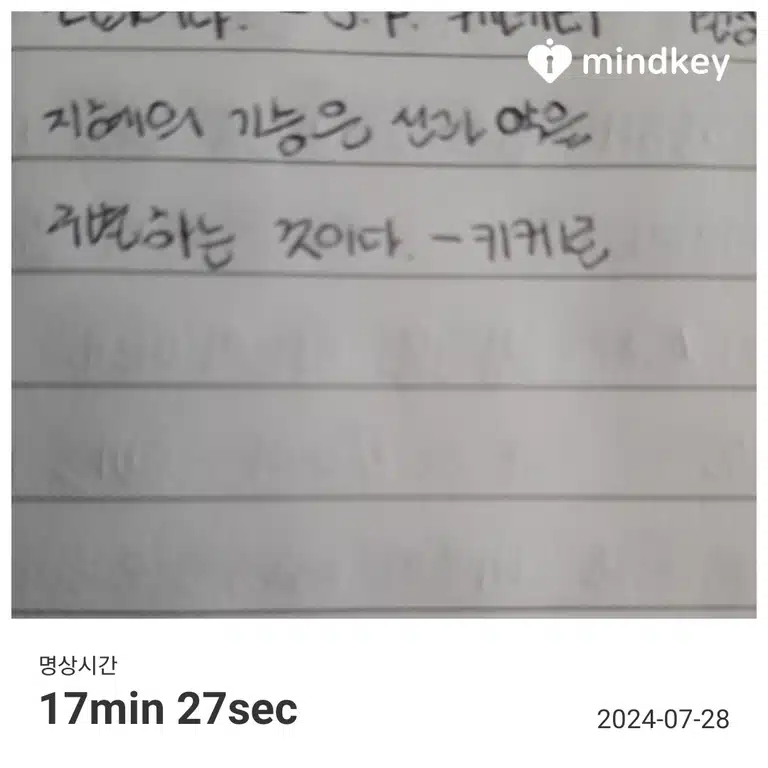 J. F. 케네디
mindkey
지혜의 기능은 선과 악을
구별하는 것이다. -키케로
명상시간
17min 27sec
2024-07-28